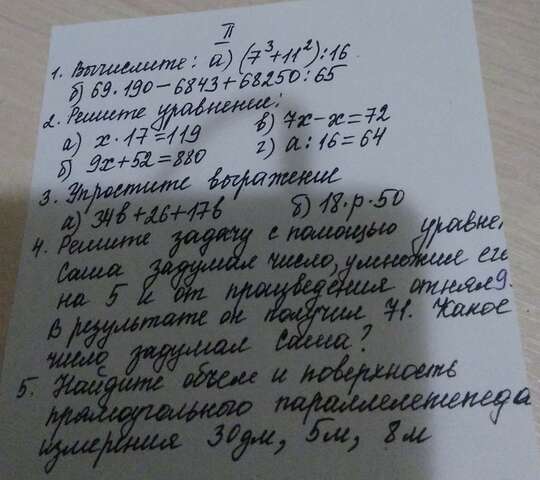 II
1. Вычислите: а) (7³+11²):16
б) 69·190-6843+68250:65
2. Решите уравнение:
а) x·17=119 в) 7x-x=72
б) 9x+52=880 г) a:16=64
3. Упростите выражение
а) 34b+26+17b б) 18·p·50
4. Решите задачу с помощью уравне.
Саша задумал число, умножил его
на 5 и от произведения отнял 9.
В результате он получил 71. Какое
число задумал Саша?
5. Найдите объем и поверхность
прямоугольного параллелепипеда
измерения 30дм, 5м, 8м